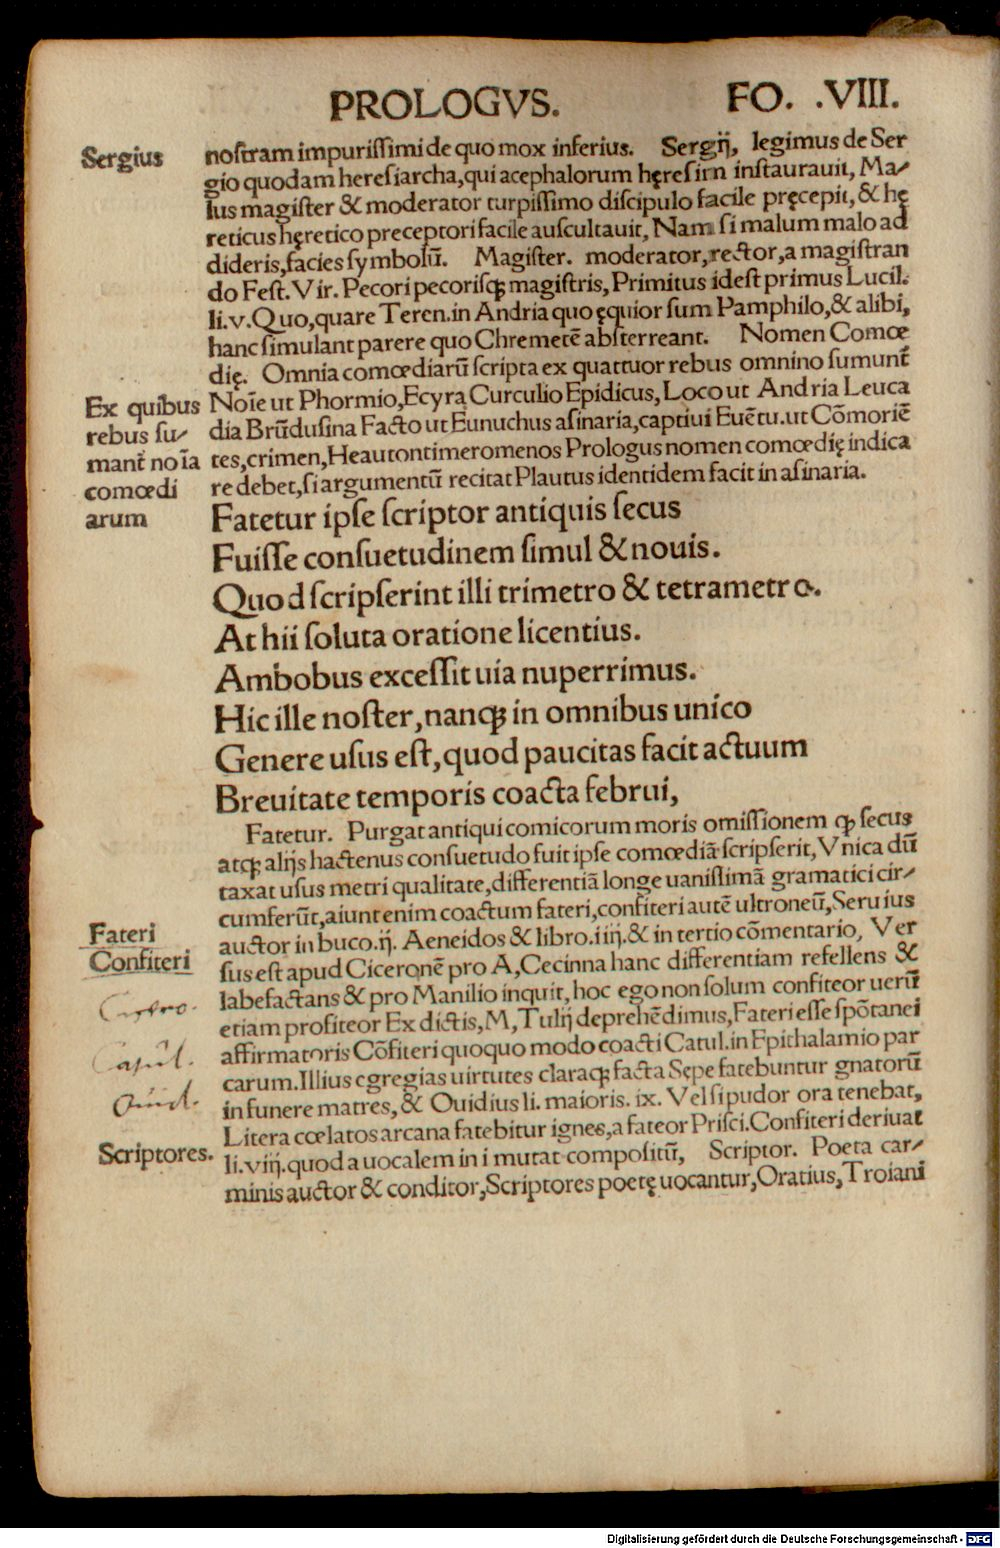 PROLOGVS. FO. .VIII.
Sergius
noſtram impuriſſimi de quo mox inferius. Sergij, legimus de Ser
gio quodam hereſiarcha,qui acephalorum hęreſim inſtaurauit, Ma⸗
lus magiſter & moderator turpiſſimo diſcipulo facile pręcepit, & hę
reticus hęretico preceptori facile auſcultauit, Nam ſi malum malo ad
dideris,facies ſymbolū. Magiſter. moderator,rector,a magiſtran
do Feſt. Vir. Pecori pecoriſq; magiſtris, Primitus ideſt primus Lucil.
li.v.Quo,quare Teren.in Andria quo ęquior ſum Pamphilo,& alibi,
hanc ſimulant parere quo Chremetē abſterreant. Nomen Comœ
dię. Omnia comœdiarū ſcripta ex quattuor rebus omnino ſumunt̄
Ex quibus
rebus ſu⸗
mant̄ noīa
comœdi
arum
Noīe ut Phormio,Ecyra Curculio Epidicus, Loco ut Andria Leuca
dia Brūduſina Facto ut Eunuchus aſinaria,captiui Euētu.ut Cōmoriē
tes,crimen,Heautontimeromenos Prologus nomen comœdię indica
re debet,ſi argumentū recitat Plautus identidem facit in aſinaria.
Fatetur ipſe ſcriptor antiquis ſecus
Fuiſſe conſuetudinem ſimul & nouis.
Quod ſcripſerint illi trimetro & tetrametro.
At hii ſoluta oratione licentius.
Ambobus exceſſit uia nuperrimus.
Hic ille noſter,nanq; in omnibus unico
Genere uſus eſt,quod paucitas facit actuum
Breuitate temporis coacta februi,
Fatetur. Purgat antiqui comicorum moris omiſſionem ꝙ ſecus
atq; alijs hactenus conſuetudo fuit ipſe comœdiā ſcripſerit, Vnica dū
taxat uſus metri qualitate,differentiā longe uaniſſimā gramatici cir⸗
cumferūt,aiunt enim coactum fateri,confiteri autē ultroneū,Seruius
Fateri
Confiteri
auctor in buco.ij. Aeneidos & libro.iiij.& in tertio cōmentario, Ver
ſus eſt apud Ciceronē pro A,Cecinna hanc differentiam refellens &
labefactans & pro Manilio inquit, hoc ego non ſolum confiteor uerū
etiam profiteor Ex dictis,M,Tulij deprehēdimus,Fateri eſſe ſpōtanei
affirmatoris Cōfiteri quoquo modo coacti Catul.in Epithalamio par
carum.Illius egregias uirtutes claraq; facta Sępe fatebuntur gnatorū
Ouid.
in funere matres, & Ouidius li. maioris. ix. Vel ſi pudor ora tenebat,
Litera cœlatos arcana fatebitur ignes,a fateor Priſci.Confiteri deriuat
Scriptores.
li.viij.quod a uocalem in i mutat compoſitū, Scriptor. Poeta car⸗
minis auctor & conditor,Scriptores poetę uocantur,Oratius,Troiani
Digitalisierung gefördert durch die Deutsche Forschungsgemeinschaft - DFG